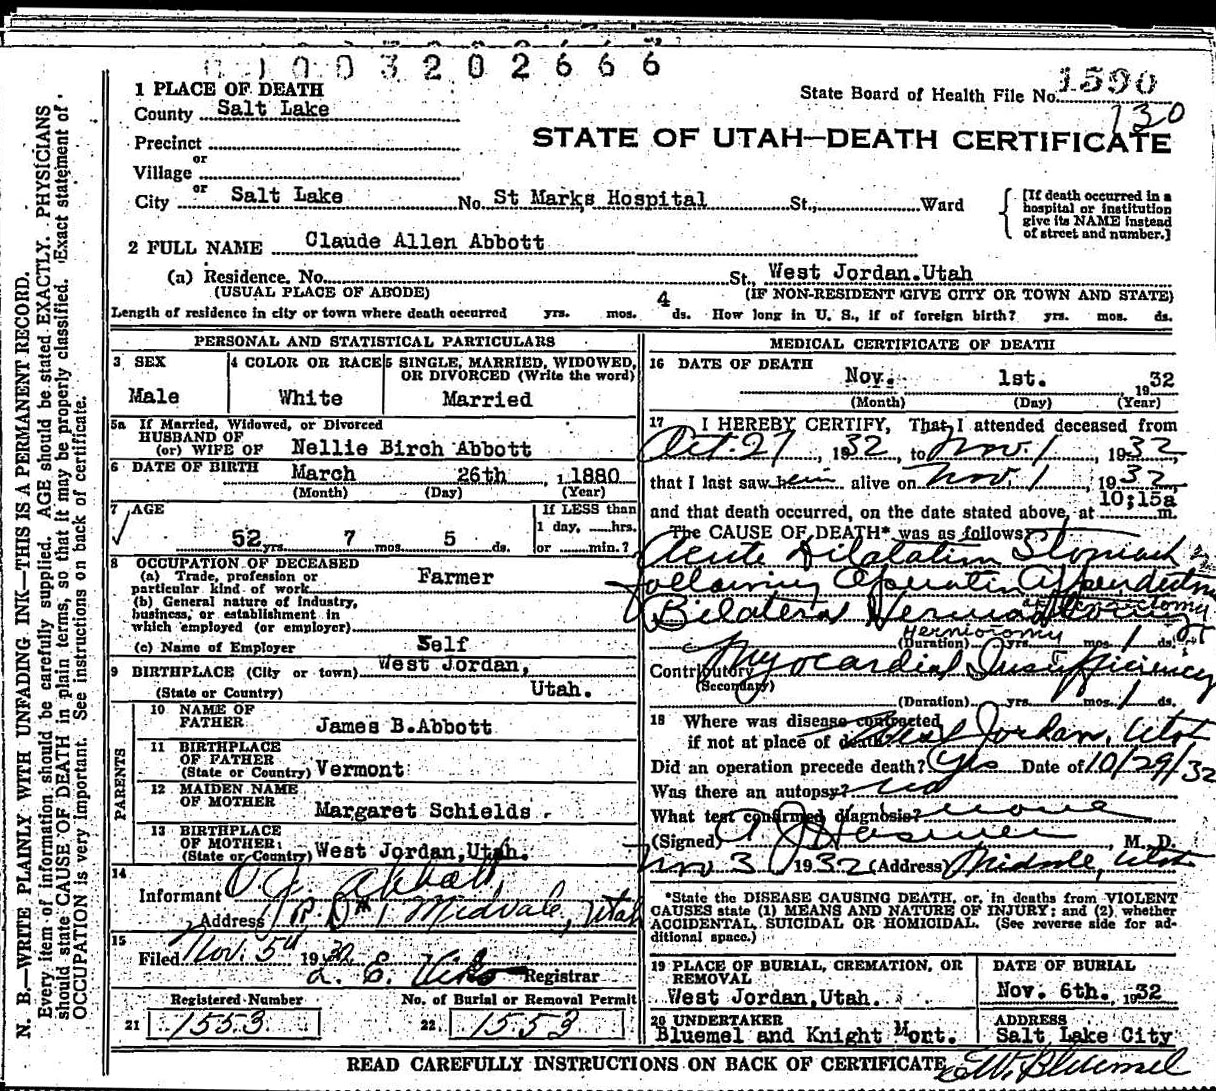 0 1 0 0 3 2 0 2 6 6 6
1 PLACE OF DEATH
County Salt Lake
State Board of Health File No. 1590
130
STATE OF UTAH—DEATH CERTIFICATE
Precinct
or
Village
or
City Salt Lake No. St Marks Hospital St., Ward
[If death occurred in a hospital or institution give its NAME instead of street and number.]
2 FULL NAME Claude Allen Abbott
(a) Residence. No. St., West Jordan.Utah
(USUAL PLACE OF ABODE) (IF NON-RESIDENT GIVE CITY OR TOWN AND STATE)
Length of residence in city or town where death occurred yrs. mos. 4 ds. How long in U. S., if of foreign birth? yrs. mos. ds.
PERSONAL AND STATISTICAL PARTICULARS
3 SEX
Male
4 COLOR OR RACE
White
5 SINGLE, MARRIED, WIDOWED,
OR DIVORCED (Write the word)
Married
5a If Married, Widowed, or Divorced
HUSBAND OF
(or) WIFE OF Nellie Birch Abbott
6 DATE OF BIRTH March 26th , 1 1880
(Month) (Day) (Year)
7 AGE
52 yrs. 7 mos. 5 ds.
If LESS than
1 day, hrs.
or min.?
8 OCCUPATION OF DECEASED
(a) Trade, profession or
particular kind of work Farmer
(b) General nature of industry,
business, or establishment in
which employed (or employer)
(c) Name of Employer Self
9 BIRTHPLACE (City or town) West Jordan,
(State or Country) Utah.
PARENTS
10 NAME OF
FATHER James B.Abbott
11 BIRTHPLACE
OF FATHER
(State or Country) Vermont
12 MAIDEN NAME
OF MOTHER Margaret Schields
13 BIRTHPLACE
OF MOTHER
(State or Country) West Jordan,Utah.
14
Informant Abbott,
Address R.D #1 Midvale, Utah
15
Filed Nov. 5th 1932
L. E. Registrar
Registered Number
21 1553
No. of Burial or Removal Permit
22 1553
MEDICAL CERTIFICATE OF DEATH
16 DATE OF DEATH
Nov. 1st. 1932
(Month) (Day) (Year)
17 I HEREBY CERTIFY, That I attended deceased from
Oct. 27, 1932, to Nov. 1, 1932,
that I last saw him alive on Nov. 1, 1932,
and that death occurred, on the date stated above, at 10;15a m.
The CAUSE OF DEATH* was as follows:
Acute Dilatation Stomach
following Operation Appendectomy
Bilateral
Herniotomy
(Duration) yrs. mos. 1 ds.
Contributory Myocardial Insufficiency
(Secondary)
(Duration) yrs. mos. 1 ds.
18 Where was disease contracted
if not at place of death? West Jordan, Utah
Did an operation precede death? Yes Date of 10/29/32
Was there an autopsy? No
What test confirmed diagnosis? none
(Signed) M. D.
Nov 3 1932 (Address) Midvale, Utah
*State the DISEASE CAUSING DEATH, or, in deaths from VIOLENT
CAUSES state (1) MEANS AND NATURE OF INJURY; and (2) whether
ACCIDENTAL, SUICIDAL OR HOMICIDAL. (See reverse side for ad-
ditional space.)
19 PLACE OF BURIAL, CREMATION, OR
REMOVAL
West Jordan,Utah.
DATE OF BURIAL
Nov. 6th., 1932
20 UNDERTAKER
Bluemel and Knight Mort.
ADDRESS
Salt Lake City
READ CAREFULLY INSTRUCTIONS ON BACK OF CERTIFICATE E.W. Bluemel
N. B.—WRITE PLAINLY WITH UNFADING INK—THIS IS A PERMANENT RECORD.
Every item of information should be carefully supplied. AGE should be stated EXACTLY. PHYSICIANS
should state CAUSE OF DEATH in plain terms, so that it may be properly classified. Exact statement of
OCCUPATION is very important. See instructions on back of certificate.